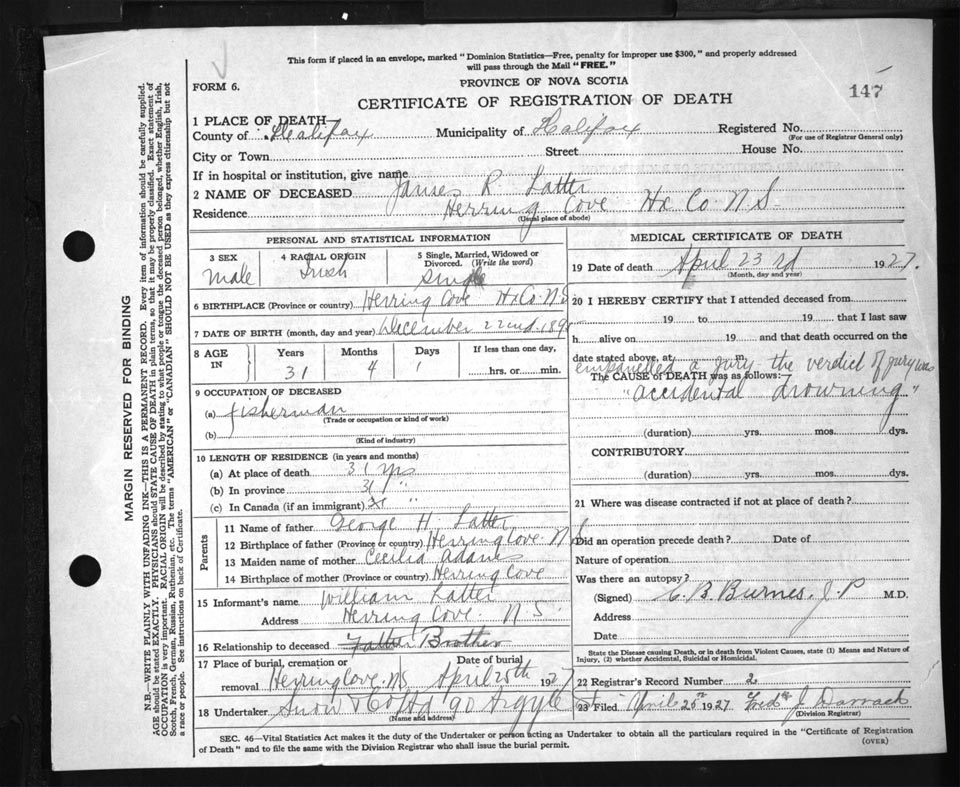 This form if placed in an envelope, marked "Dominion Statistics—Free, penalty for improper use $300," and properly addressed
will pass through the Mail "FREE."
FORM 6.
PROVINCE OF NOVA SCOTIA
147
CERTIFICATE OF REGISTRATION OF DEATH
1 PLACE OF DEATH
County of Halifax Municipality of Halifax Registered No.
(For use of Registrar General only)
City or Town Street House No.
If in hospital or institution, give name
2 NAME OF DECEASED James R Latter
Residence Herring Cove Hx Co. N.S.
(Usual place of abode)
PERSONAL AND STATISTICAL INFORMATION
3 SEX
male
4 RACIAL ORIGIN
Irish
5 Single, Married, Widowed or
Divorced. (Write the word)
single
6 BIRTHPLACE (Province or country) Herring Cove Hx Co. N.S
7 DATE OF BIRTH (month, day and year) December 22nd
8 AGE
IN
Years
31
Months
4
Days
1
If less than one day,
hrs. or min.
9 OCCUPATION OF DECEASED
(a) fisherman
(Trade or occupation or kind of work)
(b)
(Kind of industry)
10 LENGTH OF RESIDENCE (in years and months)
(a) At place of death 31 yrs
(b) In province 31 "
(c) In Canada (if an immigrant) 31 "
Parents
11 Name of father George H. Latter
12 Birthplace of father (Province or country) Herring Cove N.S
13 Maiden name of mother Cecilia Adams
14 Birthplace of mother (Province or country) Herring Cove
15 Informant's name William Latter
Address Herring Cove. N.S.
16 Relationship to deceased Father Brother
17 Place of burial, cremation or
removal Herring Cove. N.S.
Date of burial
April 25th 1927
18 Undertaker Snow & Co Ltd 90 Argyle St
(Name and address)
MEDICAL CERTIFICATE OF DEATH
19 Date of death April 23rd 1927.
(Month, day and year)
20 I HEREBY CERTIFY that I attended deceased from
19 to 19 that I last saw
h alive on 19 and that death occurred on the
date stated above, at m.
empanelled a jury - the verdict of jury was
The CAUSE of DEATH was as follows:
"accidental drowning"
(duration) yrs. mos. dys.
CONTRIBUTORY
(duration) yrs. mos. dys.
21 Where was disease contracted if not at place of death?
Did an operation precede death? Date of
Nature of operation
Was there an autopsy?
(Signed) B. Burnes. J.P M.D.
Address
Date
State the Disease causing Death, or in death from Violent Causes, state (1) Means and Nature of
Injury, (2) whether Accidental, Suicidal or Homicidal.
22 Registrar's Record Number 2
23 Filed April 25th 1927 J Darrach
(Division Registrar)
SEC. 46—Vital Statistics Act makes it the duty of the Undertaker or person acting as Undertaker to obtain all the particulars required in the "Certificate of Registration
of Death" and to file the same with the Division Registrar who shall issue the burial permit.
(OVER)
MARGIN RESERVED FOR BINDING
N.B.—WRITE PLAINLY WITH UNFADING INK—THIS IS A PERMANENT RECORD. Every item of information should be carefully supplied.
AGE should be stated EXACTLY. PHYSICIANS should STATE CAUSE OF DEATH in plain terms, so that it may be properly classified. Exact statement of
OCCUPATION is very important. RACIAL ORIGIN will be described by stating to what people or tongue the deceased person belonged, whether English, Irish,
Scotch, French, German, Russian, Ruthenian, etc. The terms "AMERICAN" or "CANADIAN" SHOULD NOT BE USED as they express citizenship but not
a race or people. See instructions on back of Certificate.